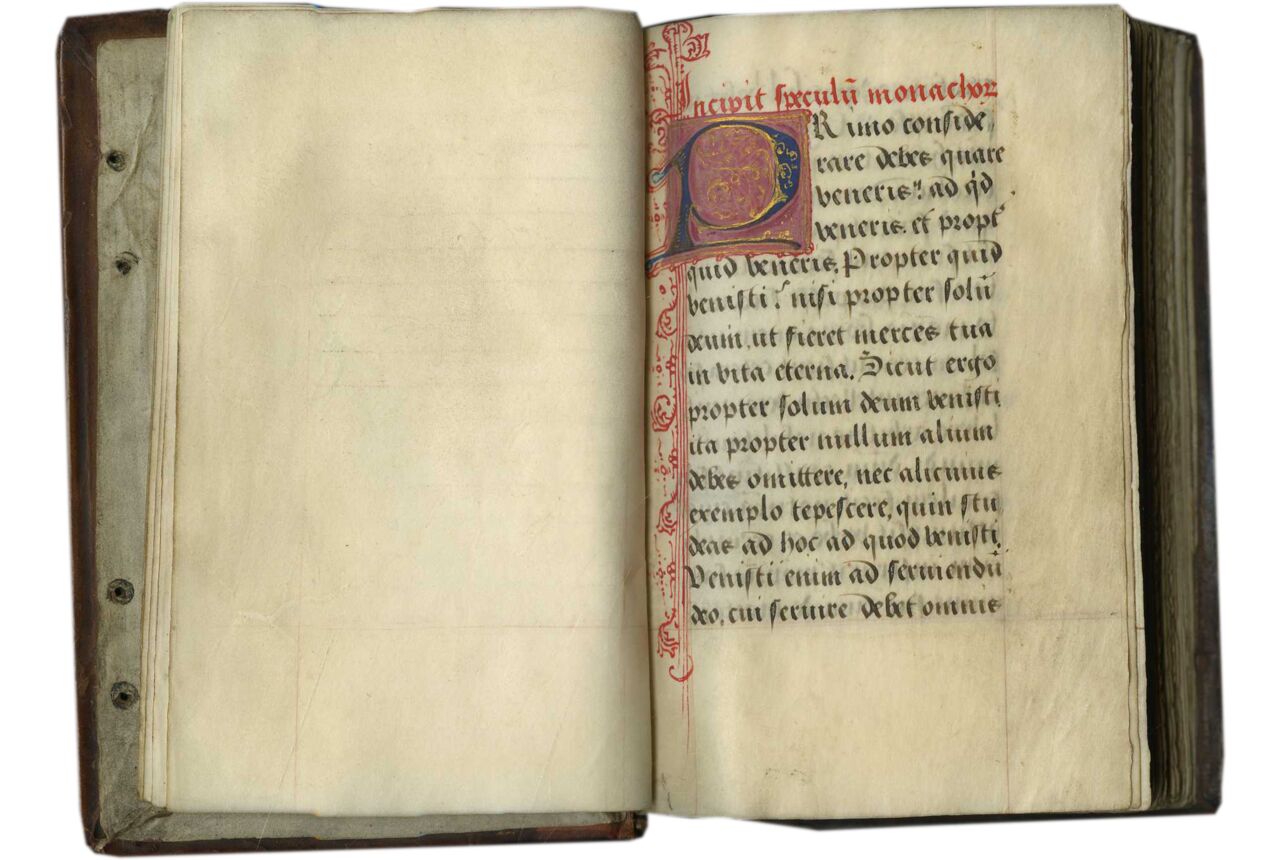 Incipit speculū monachoꝝ
PRimo conside,
rare debes quare
veneris? ad qd
veneris. et propt
quid veneris. Propter quid
venisti? nisi propter solū
deum, ut fieret merces tua
in vita eterna. Sicut ergo
propter solum deum venisti
ita propter nullum alium
debes omittere, nec alicuius
exemplo tepescere, quin stu
deas ad hoc ad quod venisti.
Venisti enim ad seruiendū
deo, cui seruire debet omnis